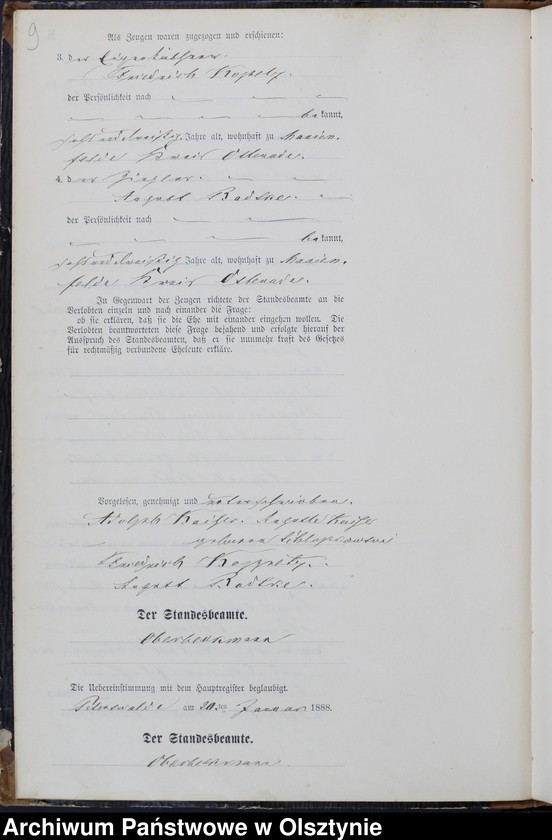 9
Als Zeugen waren zugezogen und erschienen:
3. der Eigenkäthner
Friedrich
der Persönlichkeit nach
bekannt,
Jahre alt, wohnhaft zu Marien-
felde Kreis Osterode.
4. der Ziegler
August Radtke.
der Persönlichkeit nach
bekannt,
Jahre alt, wohnhaft zu Marien-
felde Kreis Osterode.
In Gegenwart der Zeugen richtete der Standesbeamte an die
Verlobten einzeln und nach einander die Frage:
ob sie erklären, daß sie die Ehe mit einander eingehen wollen. Die
Verlobten beantworteten diese Frage bejahend und erfolgte hierauf der
Ausspruch des Standesbeamten, daß er sie nunmehr kraft des Gesetzes
für rechtmäßig verbundene Eheleute erkläre.
Vorgelesen, genehmigt und unterschrieben.
Adolph Kaiser. Auguste Kaiser
geborene
Friedrich
August Radtke.
Der Standesbeamte.
Die Uebereinstimmung mit dem Hauptregister beglaubigt.
am 20.ten Januar 1888.
Der Standesbeamte.
Archiwum Państwowe w Olsztynie